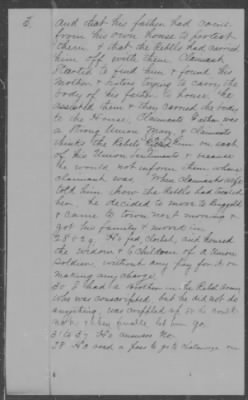 5.
and that his father had come
from his own house to protest
them & that the Rebels had carried
him off with them. Claimant
started to find him & found his
Mother & sisters trying to carry the
body of his father to house. He
assisted them & they carried the body
to the House, Claimants Father was
a strong Union Man, & Claimants
thinks the Rebels him on ac/c
of his Union Sentiments & because
he would not inform them where
claimant was. When Claimants wife
told him how the Rebels had treated
her, he decided to move to Ringgold
& came to town next morning &
got his family & moved in
28 & 29. He fed, clothed, and housed
the widow & children of a Union
Soldier, without any pay for it or
making any charge.
30. I had a Brother in the Rebel Army
who was conscripted, but he did not do
anything, was crippled up so he could
not. & they finally let him go.
31 to 37 He answers No.
38 He used a pass to go to Chattanooga on